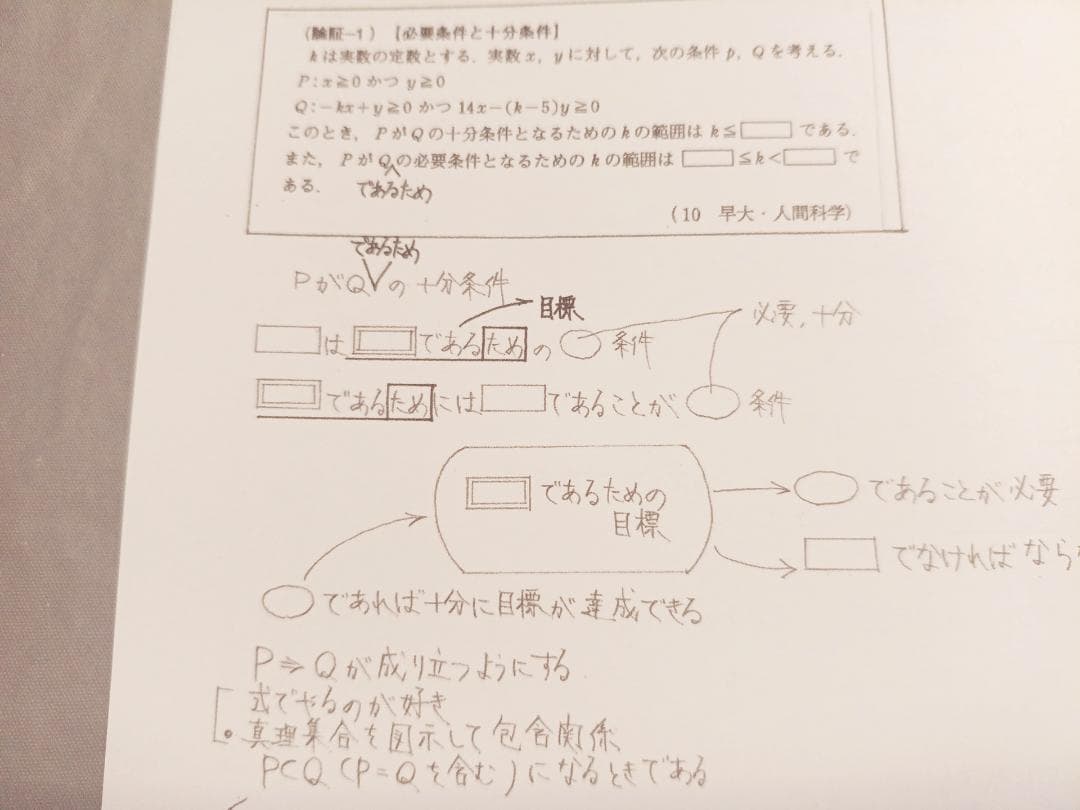 (論証-1) 【必要条件と十分条件】
kは実数の定数とする. 実数x, yに対して, 次の条件p, Qを考える.
P:x≧0かつy≧0
Q:-kx+y≧0かつ14x-(k-5)y≧0
このとき, PがQの十分条件となるためのkの範囲はk≦□である.
また, PがQの必要条件となるためのkの範囲は□≦k<□で
ある. であるため
(10 早大・人間科学)
であるため
PがQの十分条件
目標
必要,十分
□は□であるための○条件
□であるためには□であることが○条件
□であるための
目標
○であることが必要
□でなければなら
○であれば十分に目標が達成できる
P⇒Qが成り立つようにする
式でやるのが好き
真理集合を図示して包含関係
P⊂Q(P=Qを含む)になるときである